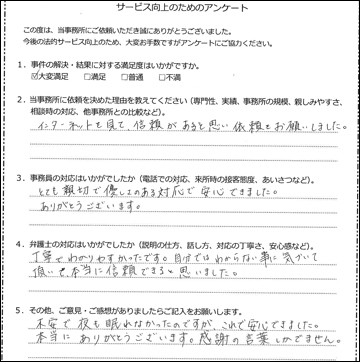 サービス向上のためのアンケート
この度は、当事務所にご依頼いただき誠にありがとうございました。
今後の法的サービス向上のため、大変お手数ですがアンケートにご協力ください。
1．事件の解決・結果に対する満足度はいかがですか。
☑大変満足　□満足　□普通　□不満
2．当事務所に依頼を決めた理由を教えてください（専門性、実績、事務所の規模、親しみやすさ、
相談時の対応、他事務所との比較など）。
インターネットを見て、信頼があると思い依頼をお願いしました。
3．事務員の対応はいかがでしたか（電話での対応、来所時の接客態度、あいさつなど）。
とても親切で優しさのある対応で安心できました。
ありがとうございます。
4．弁護士の対応はいかがでしたか（説明の仕方、話し方、対応の丁寧さ、安心感など）。
丁寧でわかりやすかったです。自分ではわからない事に気づいて
頂いて本当に信頼できると思いました。
5．その他、ご意見・ご感想がありましたらご記入をお願いします。
不安で夜も眠れなかったのですが、これで安心できました。
本当にありがとうございます。感謝の言葉しかでません。